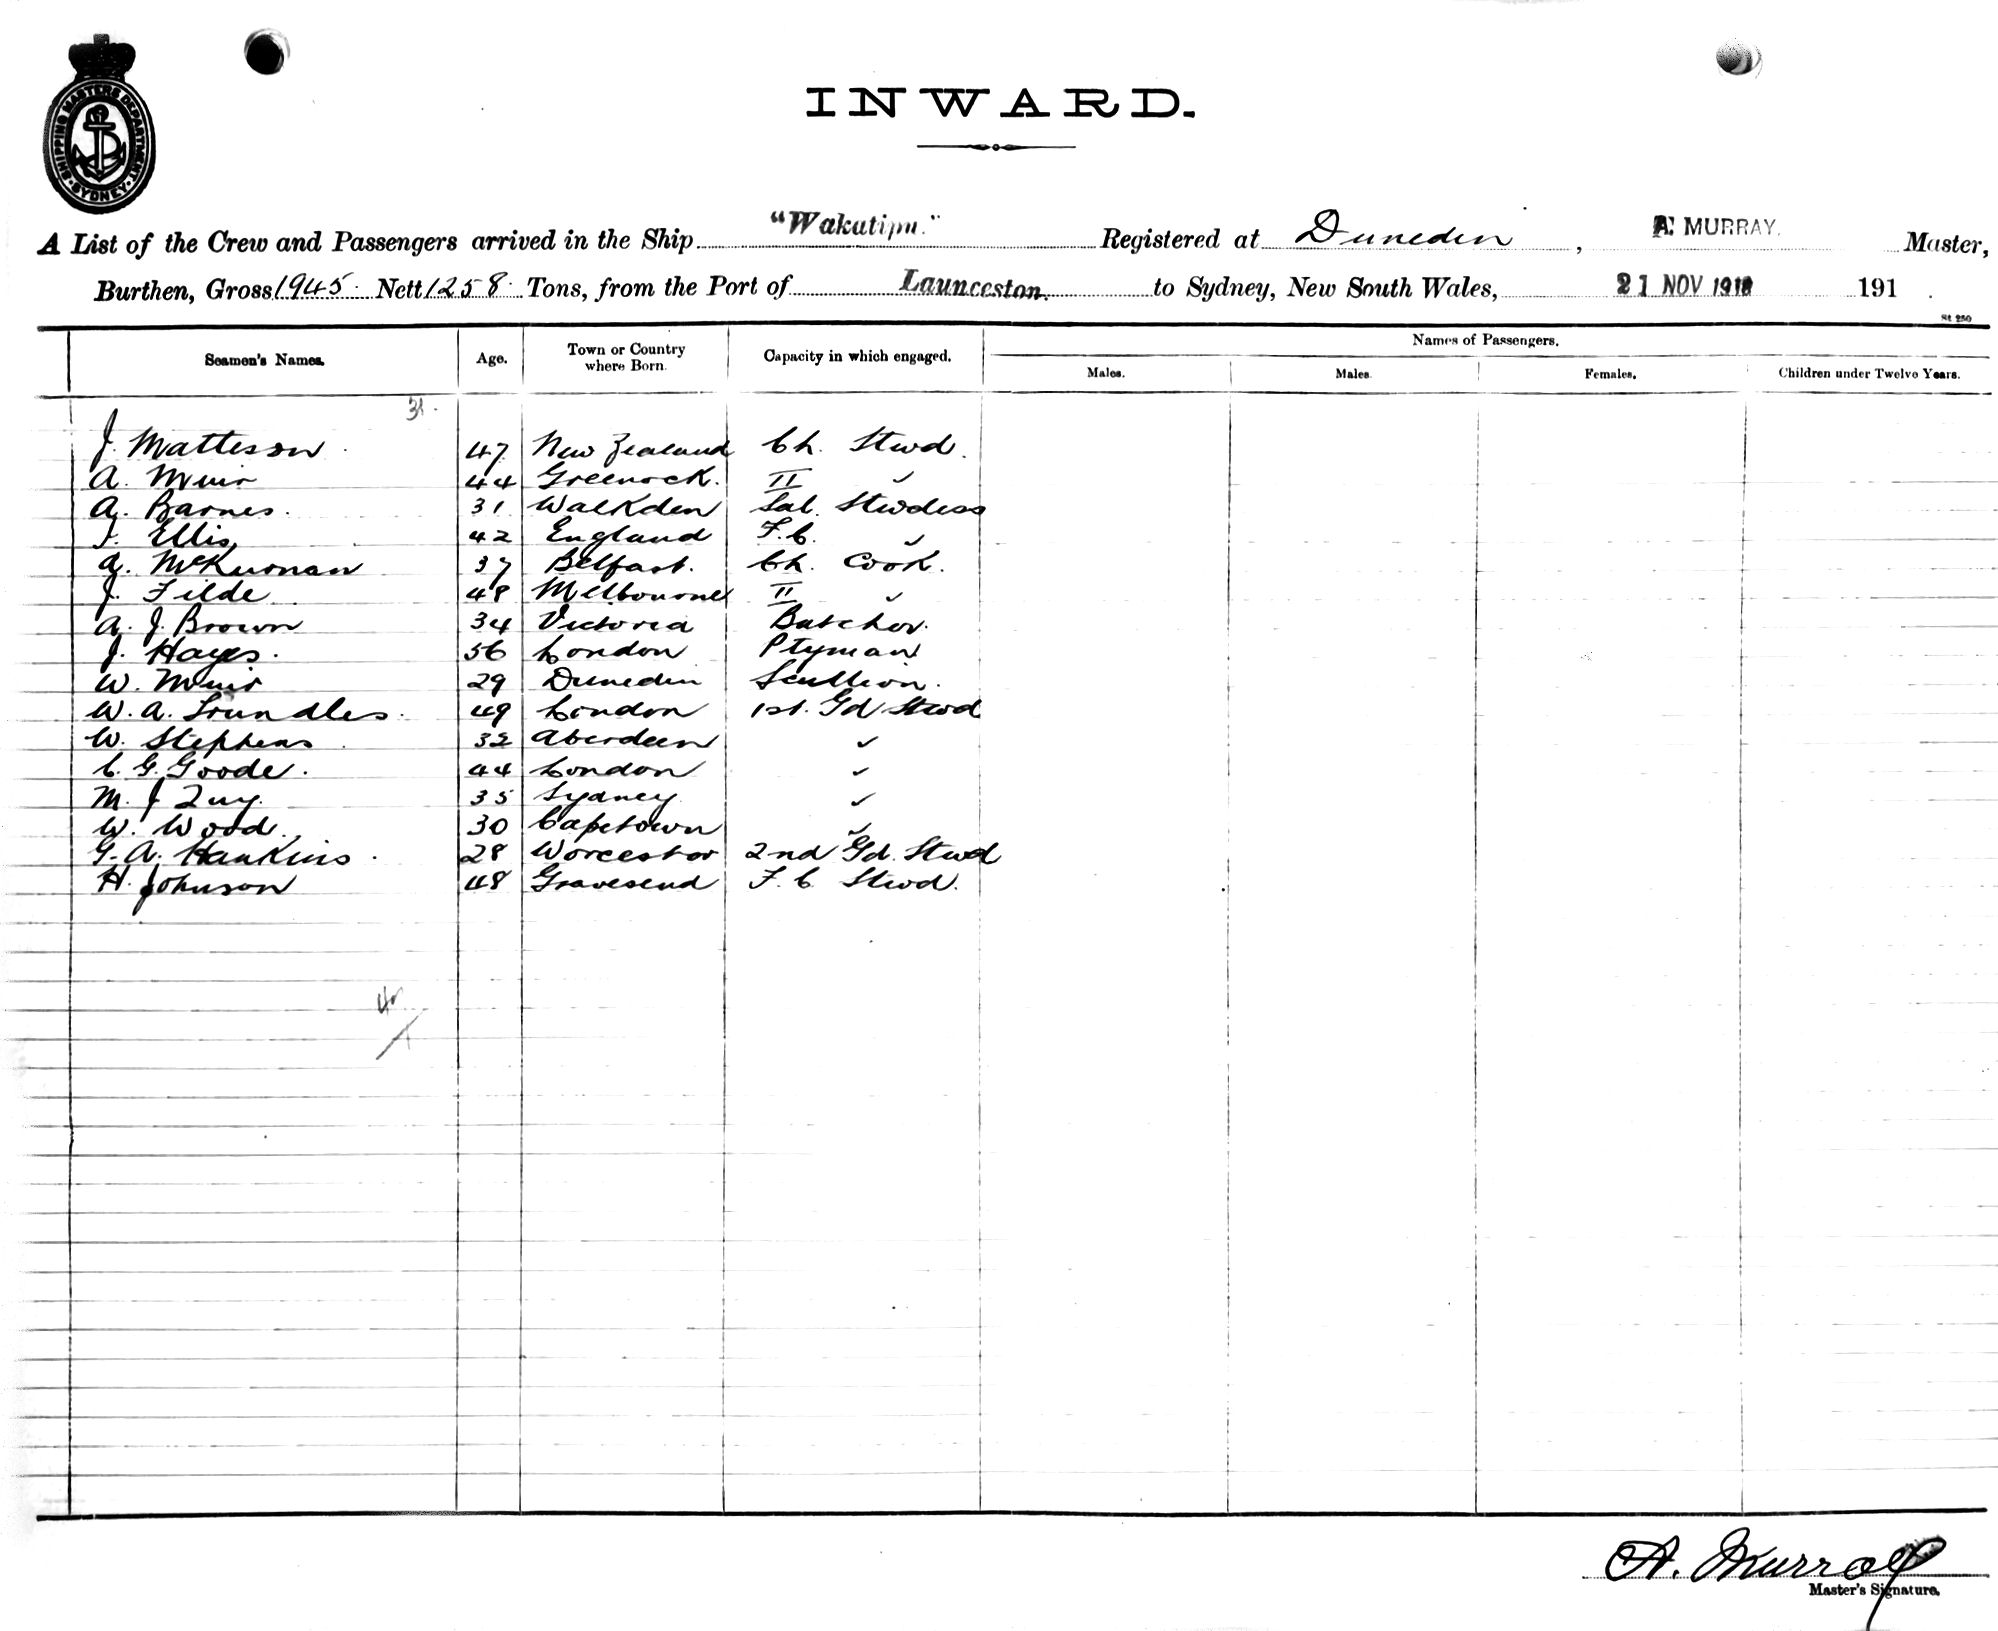 SHIPPING MASTERS DEPARTMENT
SYDNEY
INWARD.
A List of the Crew and Passengers arrived in the Ship "Wakatipu." Registered at Dunedin, A. MURRAY. Master,
Burthen, Gross 1945. Nett 1258. Tons, from the Port of Launceston. to Sydney, New South Wales, 21 NOV 1918 191 .
St 250
Seamen's Names. Age. Town or Country where Born. Capacity in which engaged. Names of Passengers.
Males. Males. Females. Children under Twelve Years.
31.
J. Matteson. 47 New Zealand Ch. Stwd.
A. Muir 44 Greenock. II ✓
A. Barnes. 31 Walkden Sal. Stwdess
Ellis 42 England F.C. ✓
A. McKiernan 37 Belfast. Ch. Cook.
J. Filde 48 Melbourne II ✓
A. J. Brown 34 Victoria Butcher.
J. Hayes. 56 London Ptyman
W. Muir 29 Dunedin Scullion.
W. A. Trundles. 49 London 1st. Gd Stwd
W. Stephens 32 Aberdeen ✓
C. G. Goode. 44 London ✓
M. J Quy. 35 Sydney ✓
W. Wood. 30 Capetown ✓
G. A. Hankins. 28 Worcester 2nd Gd. Stwd
H. Johnson 48 Gravesend F. C Stwd.
A. Murray
Master's Signature.